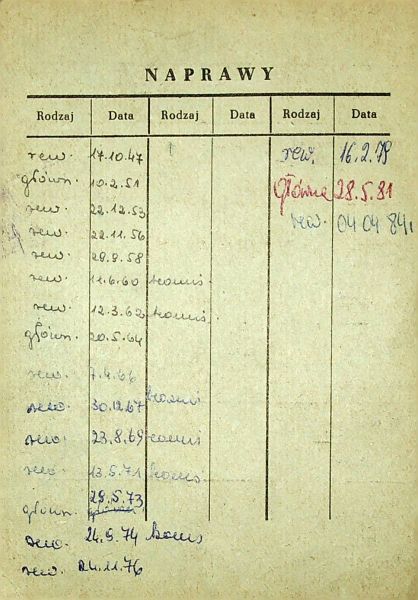 NAPRAWY
Rodzaj Data Rodzaj Data Rodzaj Data
rew. 17.10.47
główn. 10.2.51
rew. 22.12.53
rew. 22.11.56
rew. 29.8.58
rew. 11.6.60
rew. 12.3.62
główn. 20.5.64
rew. 7.4.66
rew. 30.12.67
rew. 23.8.69
rew. 13.5.71
główn. 29.5.73
rew. 24.9.74
rew. 24.11.76
rew. 16.2.79
główna 28.5.81
rew. 04 04 84